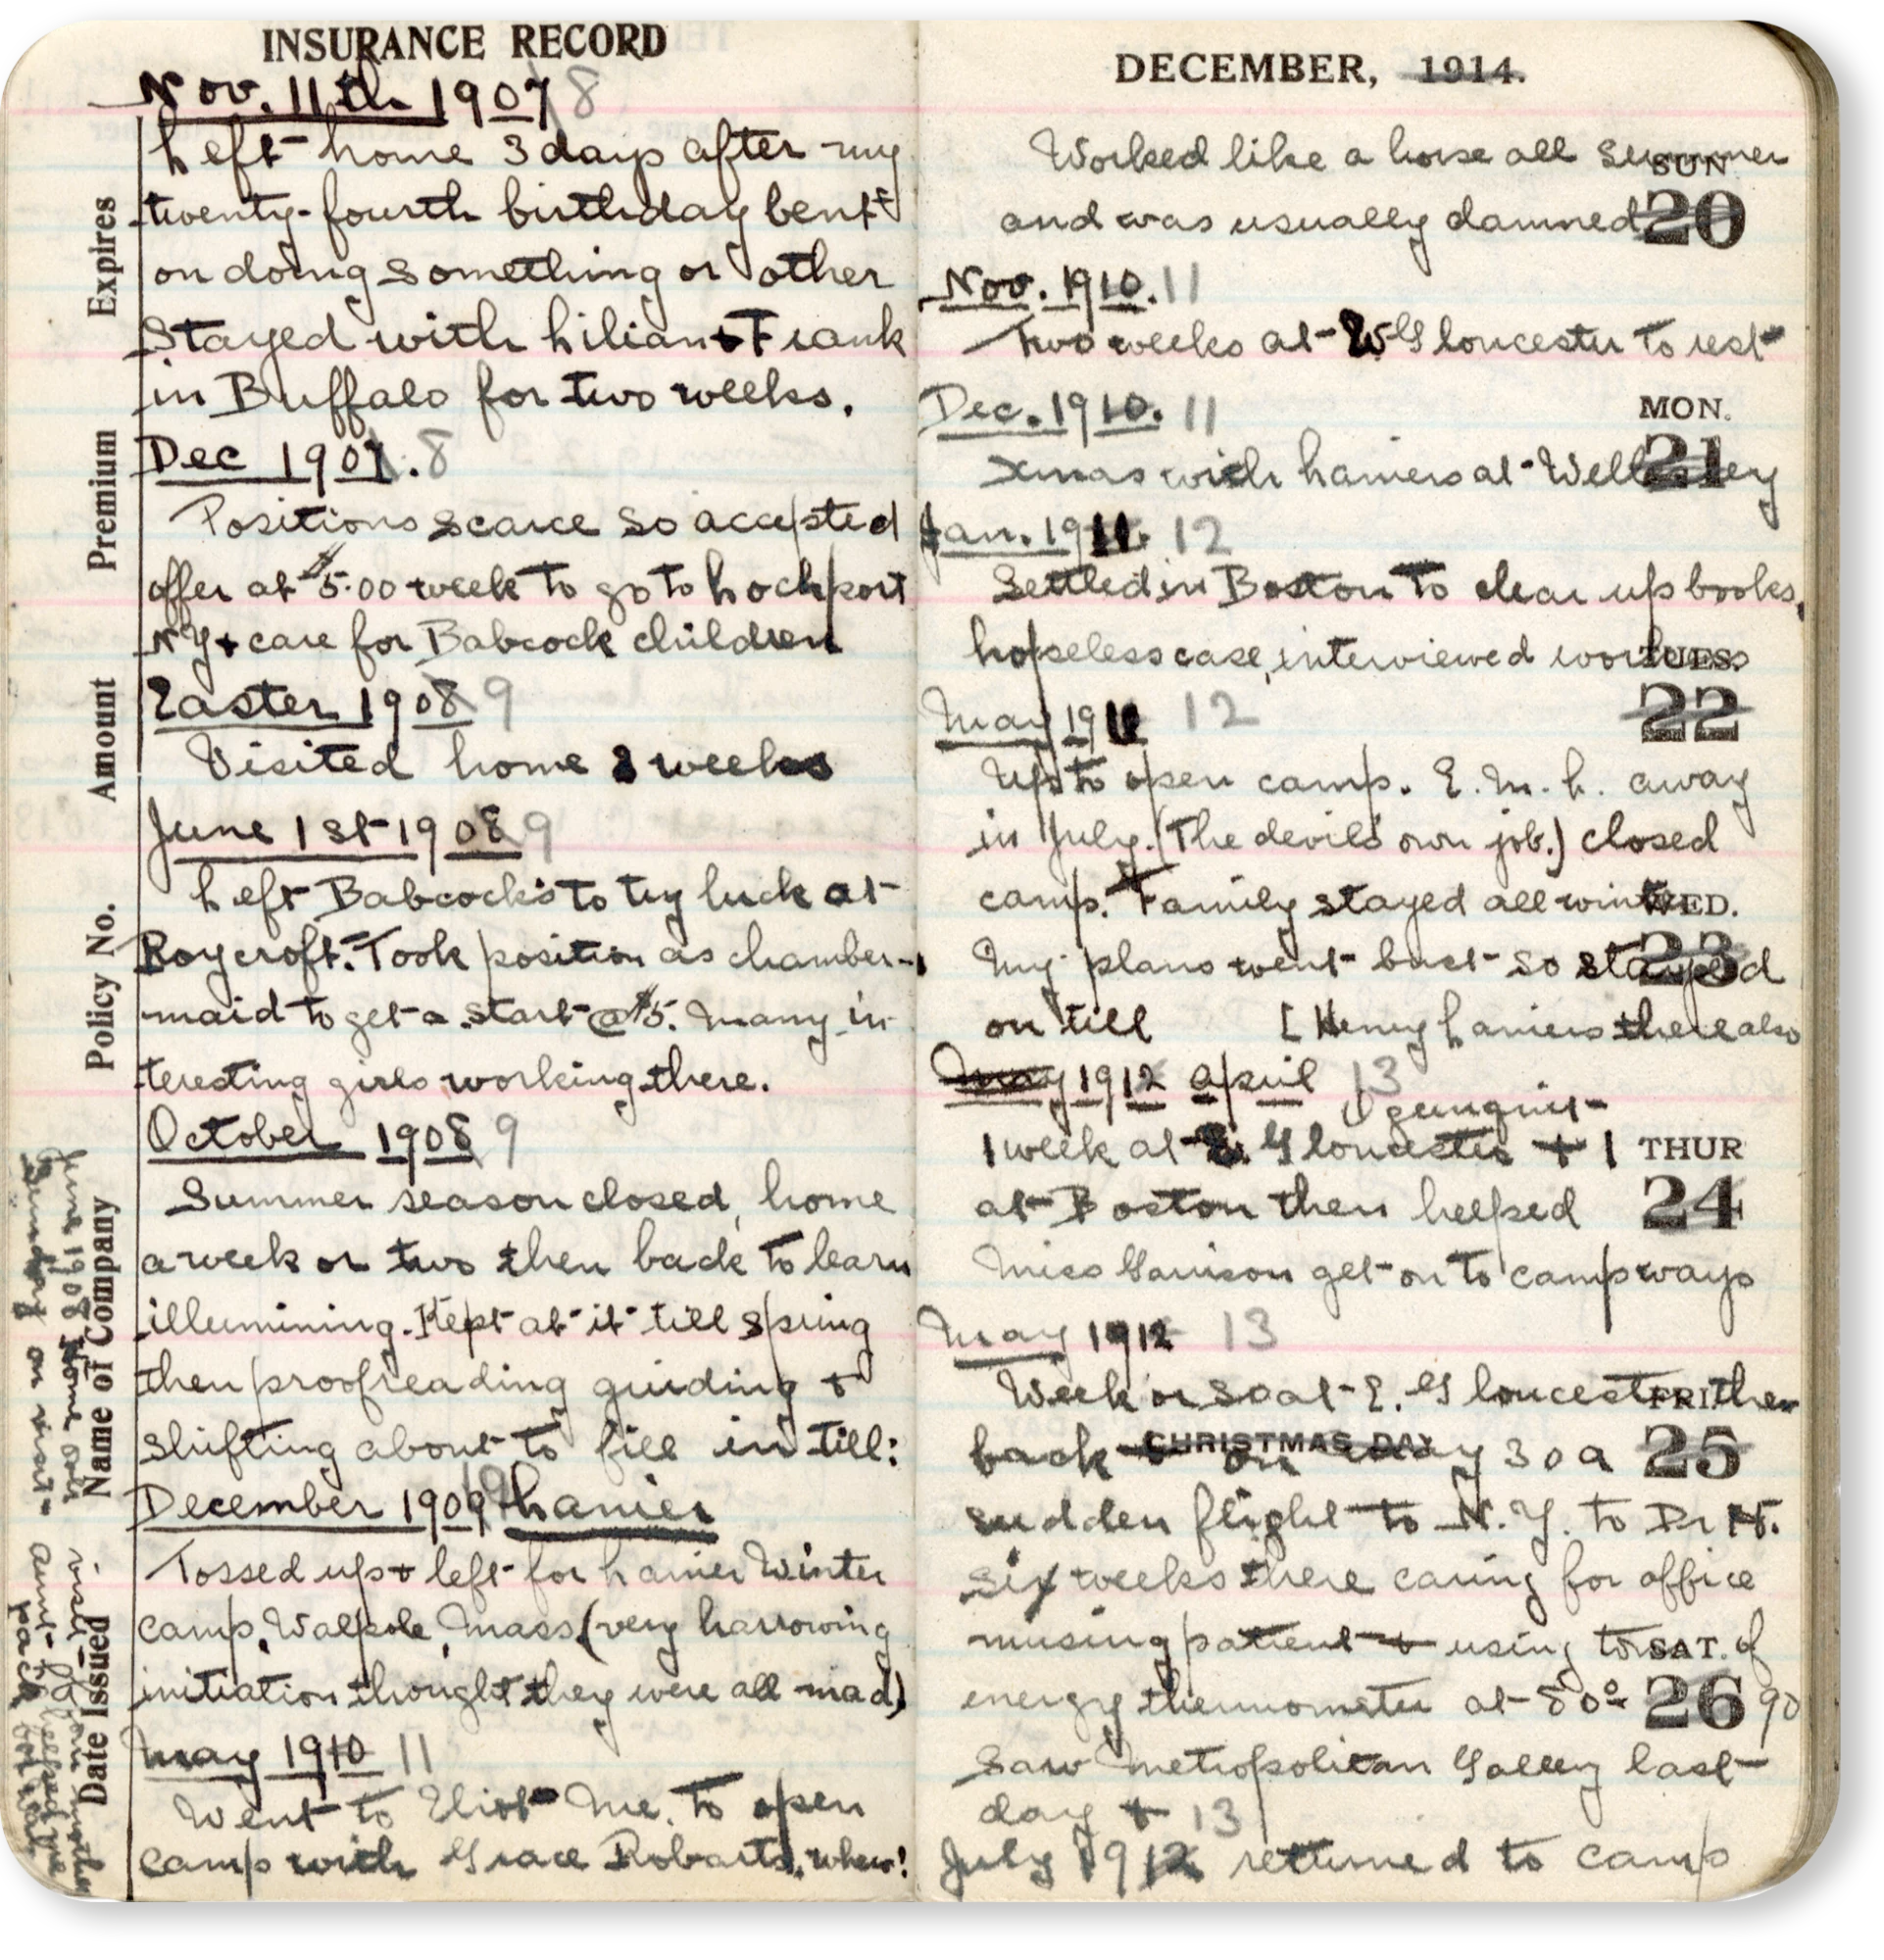 INSURANCE RECORD
Nov. 11th 1907 8
Left home 3 days after my
twenty-fourth birthday bent
on doing something or other
Stayed with Lilian + Frank
in Buffalo for two weeks.
Dec 1907. 8
Positions scarce so accepted
offer at $5.00 week to go to Lockport
N Y + care for Babcock children
Easter 1908 9
Visited home 2 weeks
June 1st 1908 9
Left Babcock's to try luck at
Roycroft. Took position as chamber-
maid to get a start @ $5. Many in-
teresting girls working there.
October 1908 9
Summer season closed, home
a week or two then back to learn
illumining. Kept at it till spring
then proofreading guiding +
shifting about to fill in till:
December 1909 10 Lanier
Tossed up + left for Lanier Winter
camp, Walpole, Mass (very harrowing
initiation thought they were all mad)
May 1910 11
Went to Eliot Me. to open
camp with Grace Robarts, whew!
Expires
Premium
Amount
Policy No.
Name of Company
Date Issued
June 1908 Home over
Sunday on visit
Aunt
DECEMBER, 1914.
Worked like a horse all summer
SUN
and was usually damned
20
Nov. 1910. 11
Two weeks at W Gloucester to rest
Dec. 1910. 11
MON.
21
Xmas with Laniers at Wellesley
Jan. 1911. 12
Settled in Boston to clear up books,
hopeless case, interviewed workers
TUES.
22
May 1911 12
Up to open camp. E. M. L. away
in July. (The devil's own job.) closed
camp. Family stayed all winter
WED.
23
My plans went bust so stayed
on till [Henry Laniers there also
May 1912 April 13
Ogunquit
1 week at E. Gloucester + 1
THUR
24
at Boston then helped
Miss Garrison get on to camp ways
May 1912 13
Week or so at E. Gloucester then
FRI.
CHRISTMAS DAY
back + on May 30 a
25
sudden flight to N.Y. to Dr N.
Six weeks there caring for office
nursing patient + using tons of
SAT.
energy thermometer at 80° 90
26
Saw Metropolitan Gallery last
day + 13
July 1912 returned to camp